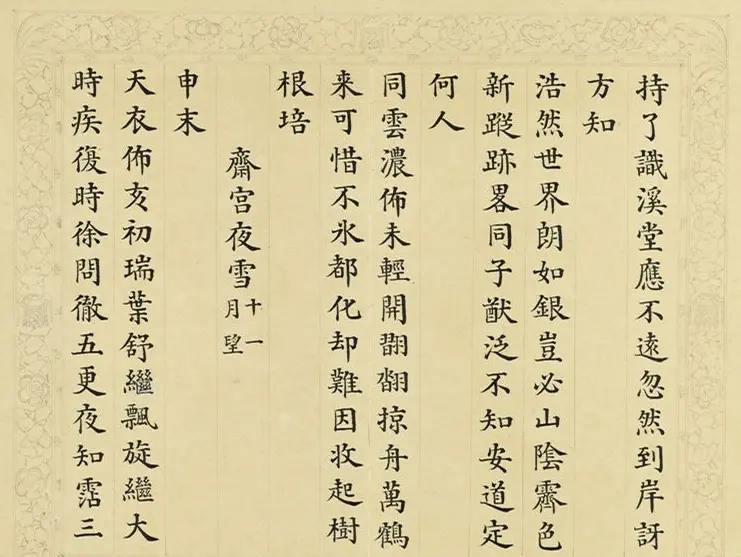 持了識溪堂應不遠忽然到岸訝
方知
浩然世界朗如銀豈必山陰霽色
新蹤跡畧同子猷泛不知安道定
何人
同雲濃佈未輕開翩翻掠舟萬鶴
来可惜不氷都化却難因收起樹
根培
齋宮夜雪十一月望
申末
天衣佈亥初瑞葉舒繼飄旋繼大
時疾復時徐問徹五更夜知霑三